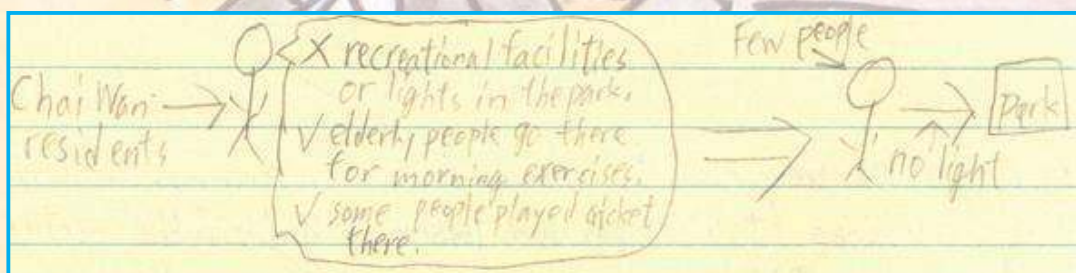 Chai Wan
residents
X recreational facilities
or lights in the park.
√ elderly people go there
for morning exercises.
√ some people played cricket
there.
Few people
no light
Park